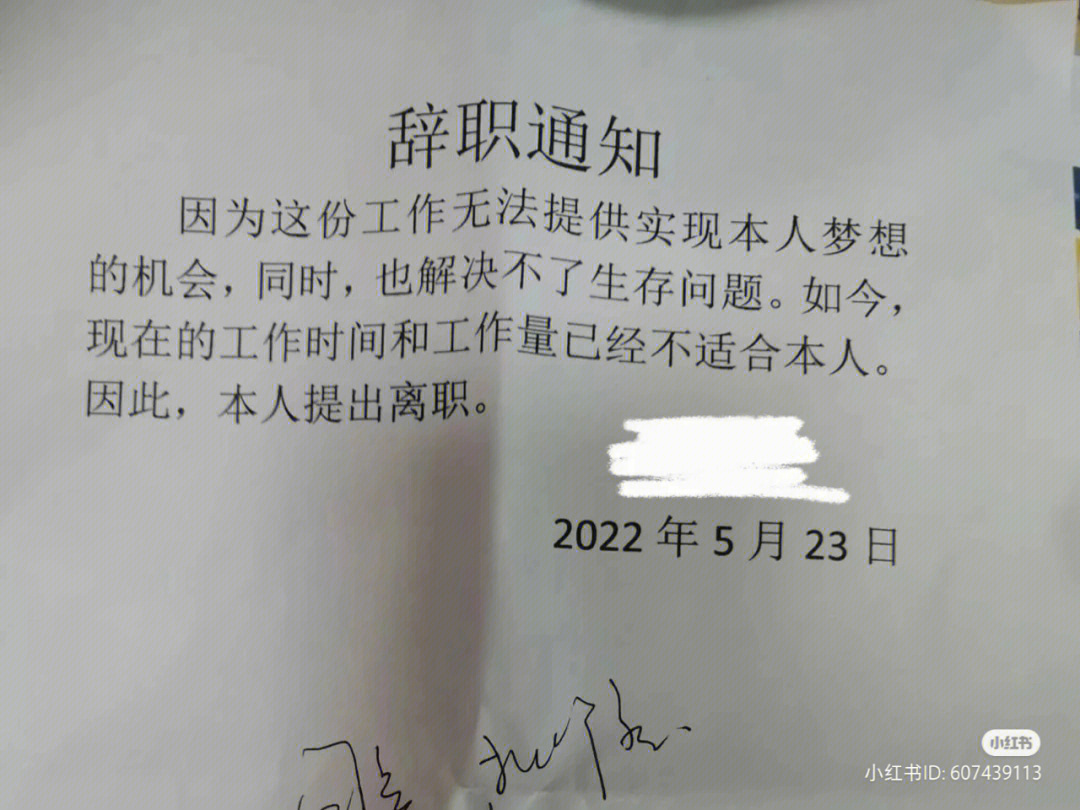 辞职通知
因为这份工作无法提供实现本人梦想
的机会，同时，也解决不了生存问题。如今，
现在的工作时间和工作量已经不适合本人。
因此，本人提出离职。
2022 年 5 月 23 日
小红书
小红书ID: 607439113